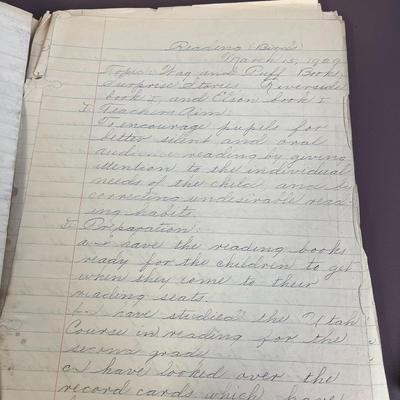 Reading "Birds"
March 15, 1929
Topic: Wag and Puff Books,
Surprise Stories Riverside
book I, and Elson book I
I. Teachers Aim:
To encourage pupils for
better silent and oral
audience reading by giving
attention to the individual
needs of the child, and by
correcting undesirable read-
ing habits.
II. Preparation:
a. I have the reading books
ready for the children to get
when they come to their
reading seats.
b. I have studied the Utah
Course in reading for the
second grade
c. I have looked over the
record cards which have